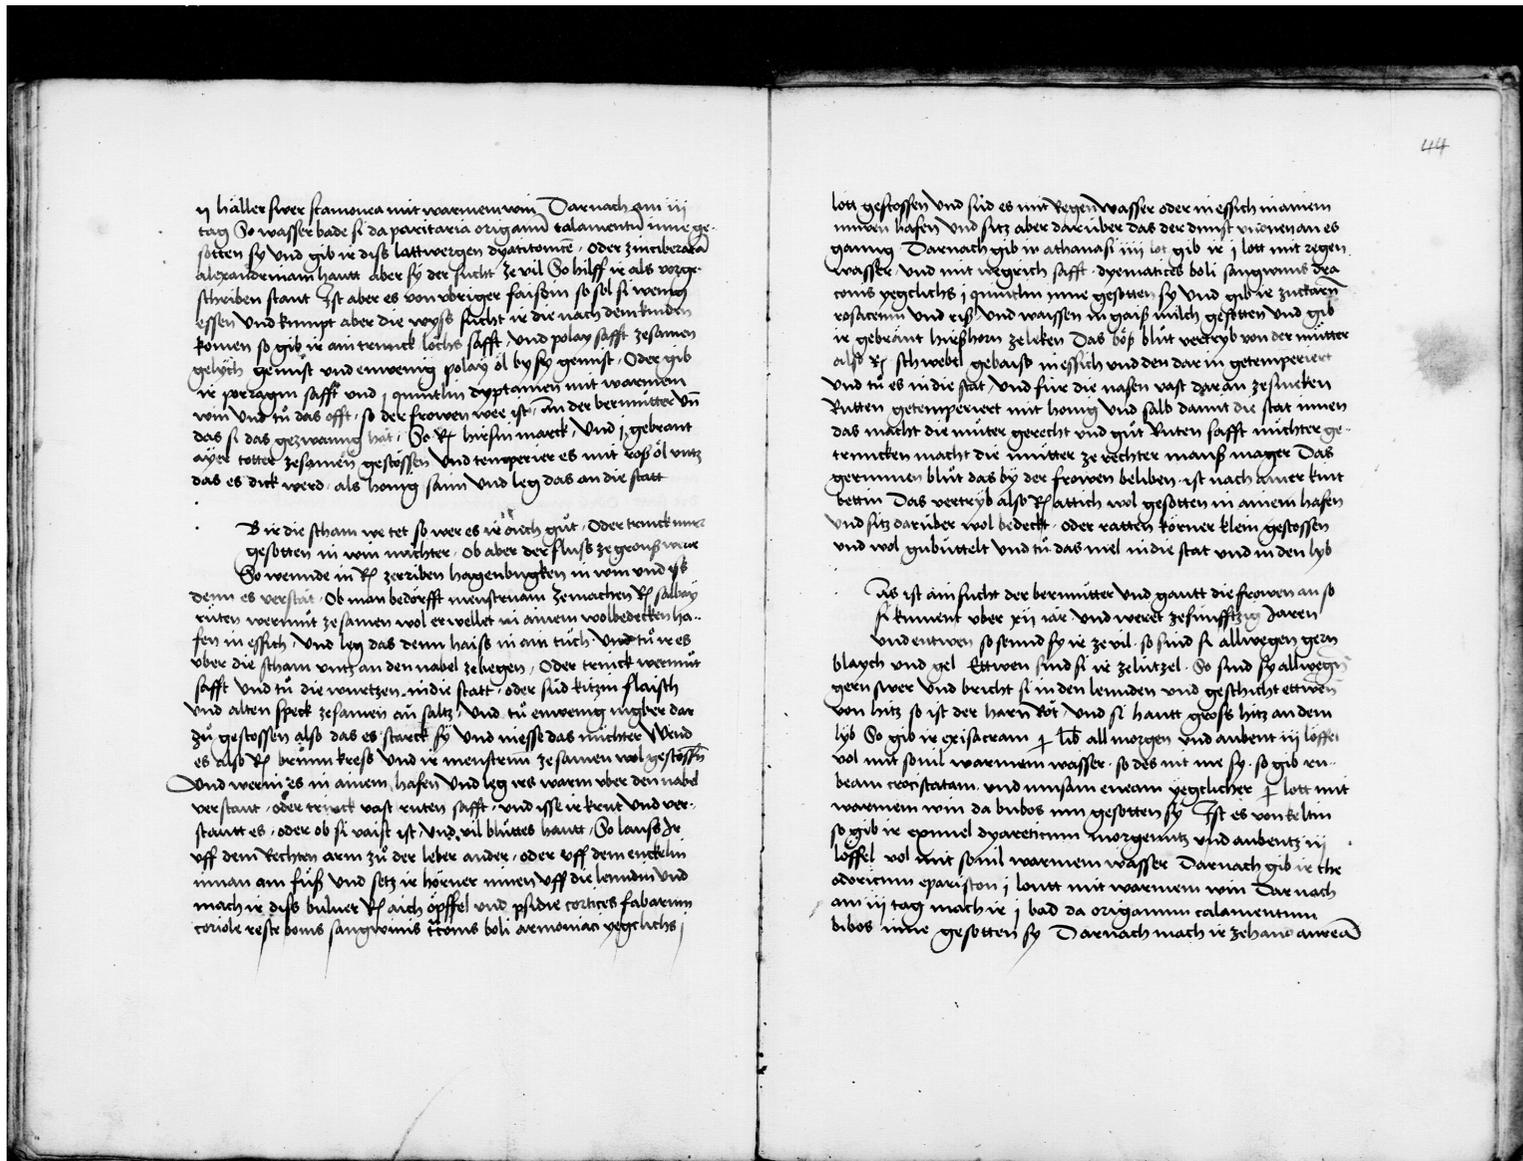 ij häller swer scamonea mit warmem win Darnach am iij
tag So wasser bade si da paritaria origanū calamentū inne ge-
sotten sy vnd gib ir diss lattwergen dyatritonicē oder zinciberatā
alexandrinam hautt aber sy der sucht ze vil So hilff ir als vorge-
schriben staut Ist aber es von vbriger faisdin so sol si wenig
essen vnd kumpt aber die wyss sucht ir die nach dem kinden
komen so gib ir ain trunck lochs safft vnd polay safft zesamen
gelÿch gemist vnd ein wenig polay öl by sy gemist Oder gib
ir porragin safft vnd j quintlin dyptamen mit warmem
win vnd tů das offt so der frowen wee ist An der bermůtter vn̄
das si das gezwang hat So Rx hirsin marck vnd j gebrant
ayer totter zesamen gestossen vnd temperier es mit ross öl vntz
das es dick werd als honig saim vnd leg das an die statt
B ir die scham we tet so wer es ir aich gůt Oder trinck
gesotten in win nüchter Ob aber der fluss ze gross were
So wennde in Rx zerriben hagenbugken in win vnd iss
denn es verstat Ob man bedörfft menstruam zemachen Rx salbay
rüten wermůt zesamen wol erwellet in ainem wolbedeckten ha-
fen in essich vnd leg das denn haiss in ain tůch vnd tů ir es
vber die scham vntz an den nabel zebegen Oder trinck wermůt
safft vnd tů die wurtzen in die statt oder süd kitzin flaisch
vnd alten speck zesamen an saltz vnd tů ein wenig ingber dar
zů gestossen also das es starck sy vnd niesse das nüchter Wend
es also Rx brunn kress vnd ir menstruū zesamen wol gestossn̄
vnd werm es in ainem hafen vnd leg irs warm vber den nabel
verstaut oder trinck vast ruten safft vnd isse ir krut vnd ver-
stautt es oder ob si vaist ist vnd vil blůttes hautt So lauss Ir
vff dem Rechten arm zů der leber ander oder vff dem enckelin
innan am fůss vnd setz ir hörner innen vff die lenndin vnd
mach ir diss buluer Rx aich öpffel vnd psidie cortices fabarum
coriole reste bonis sangwinis tconis boli armoniaci yegclichs j
44
lott gestossen vnd süd es mit Regenwasser oder in essich in ainem
nuwen hafen vnd sitz aber darüber das der dunst innen an es
gaung Darnach gib ir athanasi iiij lot gib ir j lott mit regen
wasser vnd mit wegrich safft dyematices boli sangwinis dra
conis yegclichs j quintlin inne gesotten sy vnd gib ir zuckarū
rosacetum vnd riss vnd waissen in gaiss milch gesotten vnd gib
ir gebrant hirsshorn zelecken Das böss blůt vertryb von der můtter
also Rx schwebel gebaist in essich vnd den dar in getemperiert
vnd tů es in die stat vnd für die nasen vast daran zesmeken
Rutten getemperiert mit honig vnd salb damit die stat innen
das macht die můter gerecht vnd gůt Ruten safft nüchter ge-
truncken macht die můtter ze rechter mauss mager Das
gerunnen blůt das by der frowen beliben ist nach ainer kint
bettin Das vertryb also Rx attich wol gesotten in ainem hafen
vnd sitz darüber wol bedeckt oder ratten körner klein gestossen
vnd wol gebüttelt vnd tů das mel in die stat vnd in den lyb
As ist ain sucht der bermůtter vnd gautt die frowen an so
si kument vber xij iar vnd weret ze fünfftzig Jaren
vnd entwen so sennd sy ir ze vil so sind si allwegen gern
blaych vnd gel Ettwen sind si ir ze lützel So sind sy allwegn̄
gern swer vnd bricht si in den lennden vnd geschicht ettwen
von hitz so ist der harn Rot vnd si hautt gross hitz an dem
lyb So gib ir trisacram lib all morgen vnd aubent iij löffel
vol mit sovil warmem wasser so des nit me sy so gib ru-
beam trocistatam vnd musam eneam yegclicher lott mit
warmem win da bibos inn gesotten sy Ist es von keltin
so gib ir eximel dyareticum morgentz vnd aubentz iij
löffel vol mit sovil warmem wasser Darnach gib ir the
odoricum epariston j loutt mit warmem win Darnach
am iij tag mach ir j bad da origanum calamentum
bibos inne gesotten sy Darnach mach ir ze hano aureā